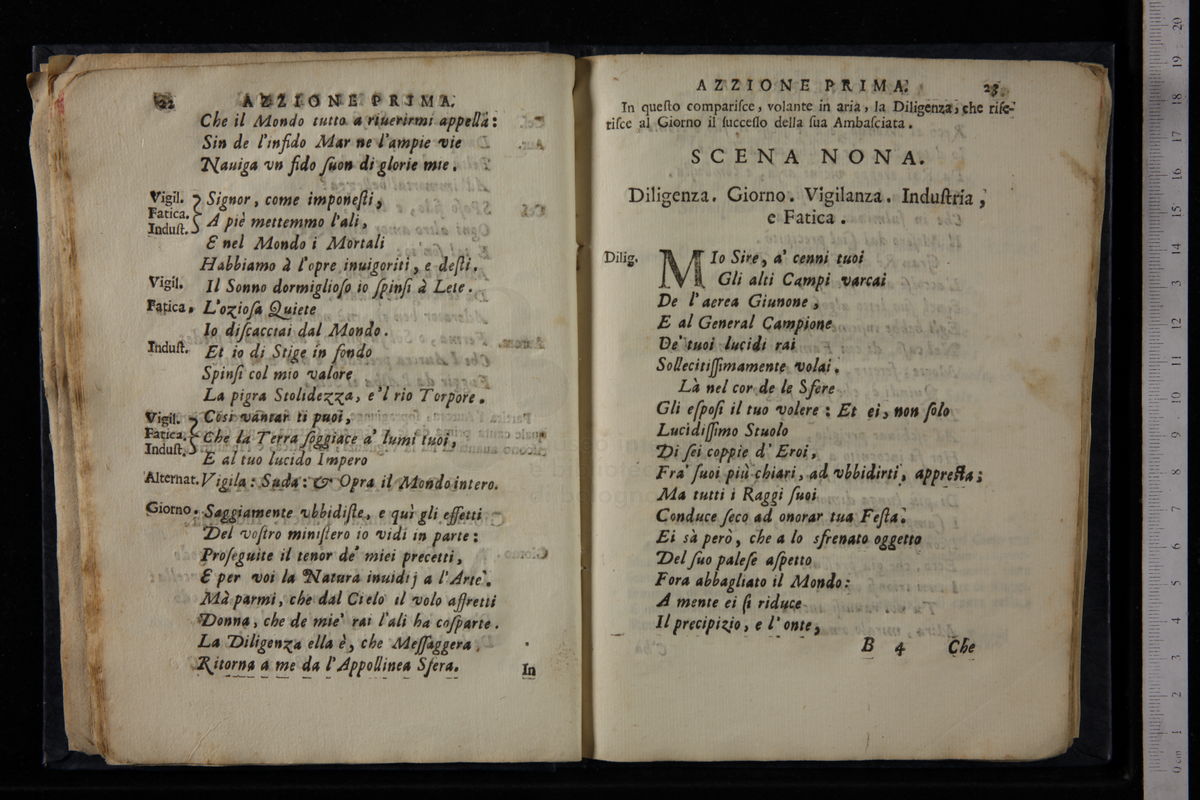 22 AZZIONE PRIMA.
Che il Mondo tutto a riuerirmi appella:
Sin de l'infido Mar ne l'ampie vie
Nauiga vn fido ſuon di glorie mie.
Vigil. Fatica. Induſt. Signor, come imponeſti,
A piè mettemmo l'ali,
E nel Mondo i Mortali
Habbiamo à l'opre inuigoriti, e deſti.
Vigil. Il Sonno dormiglioſo io ſpinſi à Lete.
Fatica. L'ozioſa Quiete
Io diſcacciai dal Mondo.
Induſt. Et io di Stige in fondo
Spinſi col mio valore
La pigra Stolidezza, e'l rio Torpore.
Vigil. Fatica. Induſt. Così vantar ti puoi,
Che la Terra ſoggiace a' lumi tuoi,
E al tuo lucido Impero
Alternat. Vigila: Suda: & Opra il Mondo intero.
Giorno. Saggiamente vbbidiſte, e quì gli effetti
Del voſtro miniſtero io vidi in parte:
Proſeguite il tenor de' miei precetti,
E per voi la Natura inuidij a l'Arte.
Mà parmi, che dal Cielo il volo affretti
Donna, che de mie' rai l'ali ha coſparte.
La Diligenza ella è, che Meſſaggera
Ritorna a me da l'Appollinea Sfera.
In
AZZIONE PRIMA. 23
In queſto compariſce, volante in aria, la Diligenza, che rife-
riſce al Giorno il ſucceſſo della ſua Ambaſciata.
SCENA NONA.
Diligenza. Giorno. Vigilanza. Induſtria,
e Fatica.
Dilig. MIo Sire, a' cenni tuoi
Gli alti Campi varcai
De l'aerea Giunone,
E al General Campione
De' tuoi lucidi rai
Sollecitiſſimamente volai.
Là nel cor de le Sfere
Gli eſpoſi il tuo volere: Et ei, non ſolo
Lucidiſſimo Stuolo
Di ſei coppie d'Eroi,
Fra' ſuoi più chiari, ad vbbidirti, appreſta;
Ma tutti i Raggi ſuoi
Conduce ſeco ad onorar tua Feſta.
Ei sà però, che a lo sfrenato oggetto
Del ſuo paleſe aſpetto
Fora abbagliato il Mondo:
A mente ei ſi riduce
Il precipizio, e l'onte,
B 4 Che